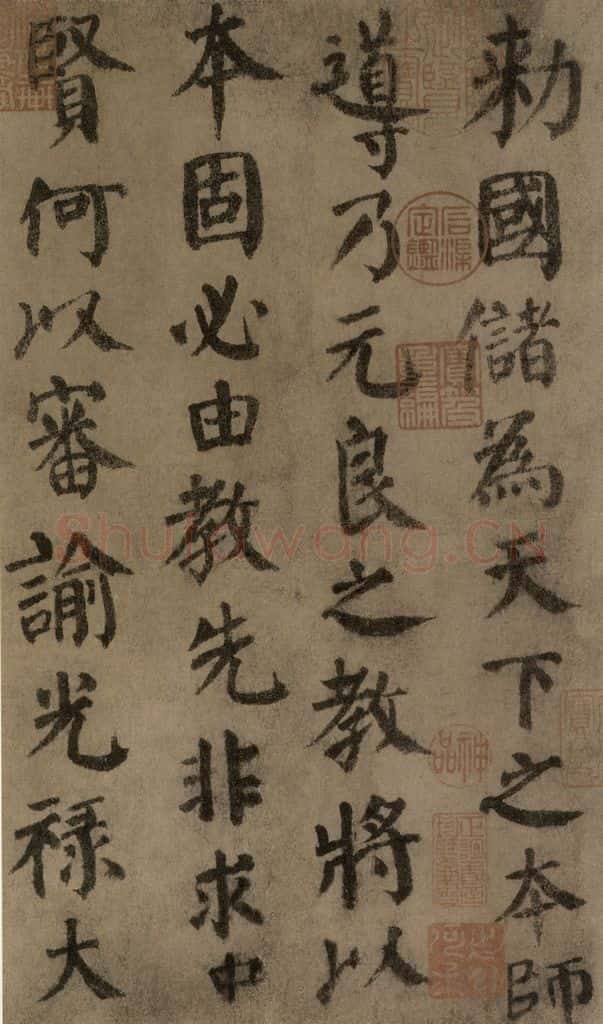 勅國儲為天下之本師
導乃元良之教將以
本固必由教先非求中
賢何以審諭光祿大
Shufawang.CN
神品